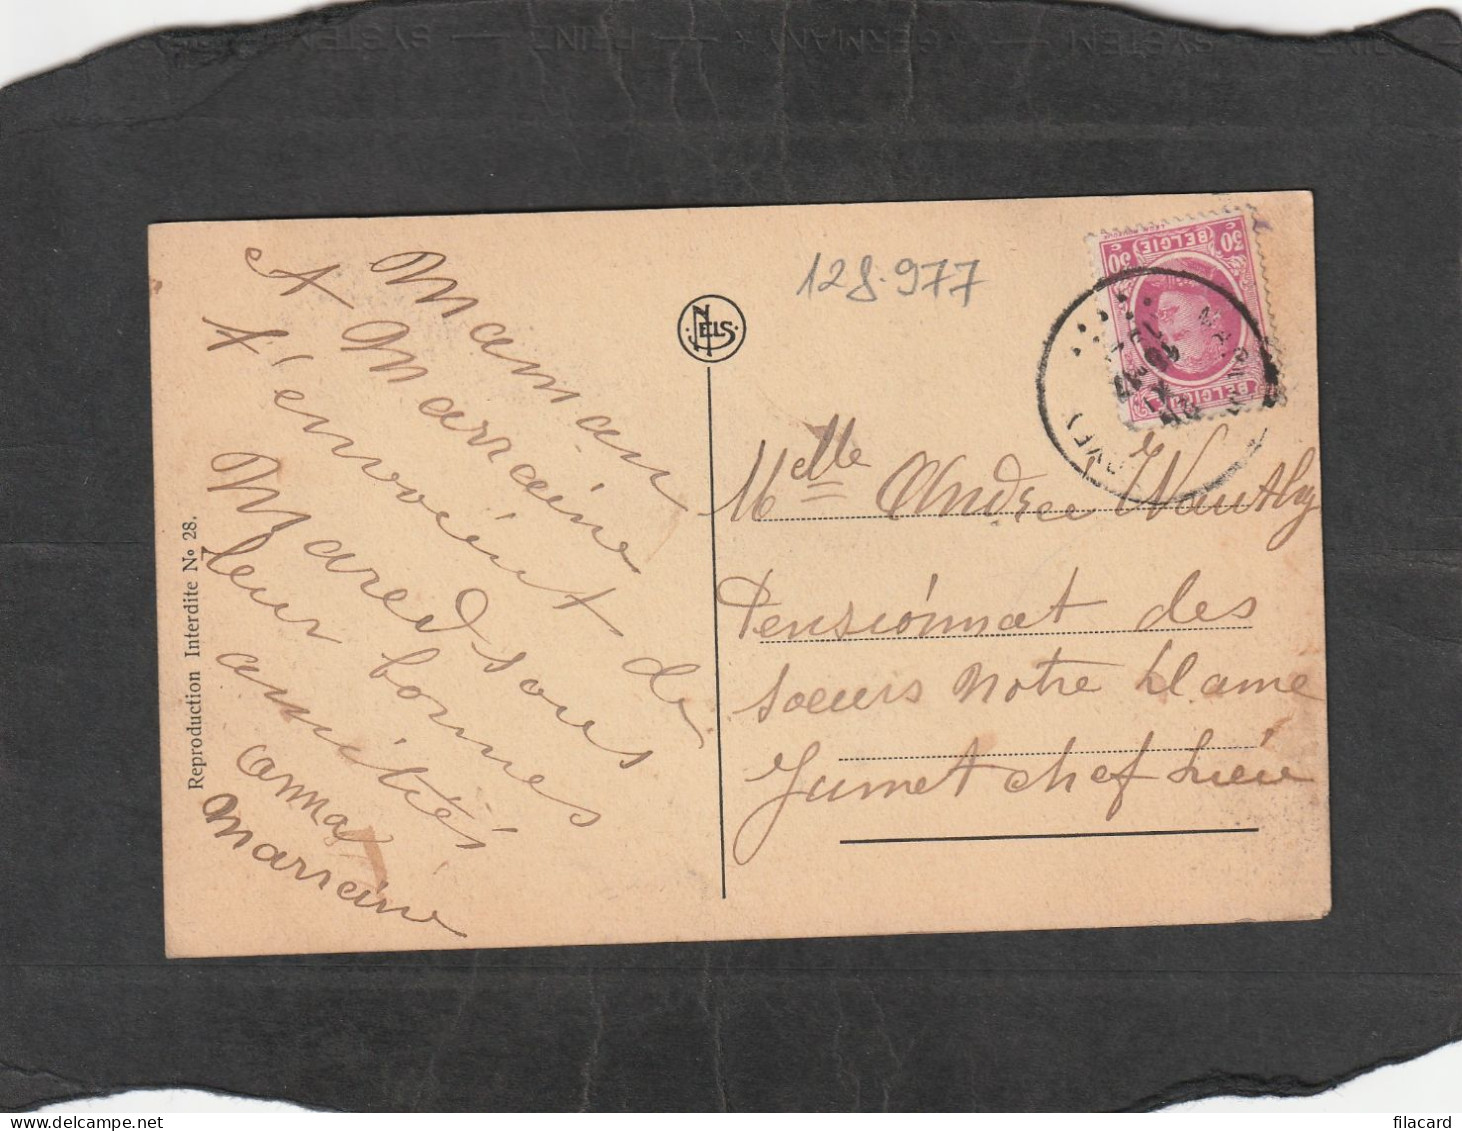 Maman
et Marraine
t'envoient de
Maredsous
leur bonnes
amitiés
anna
Marraine
Reproduction Interdite No 28.
NELS
128.977
BELGIE
BELGIQUE
Melle Andrée Wauthy
Pensionnat des
sœurs Notre Dame
Jumet chef Lieu
PRINT ★ GERMANY ★ SYSTEM
filacard